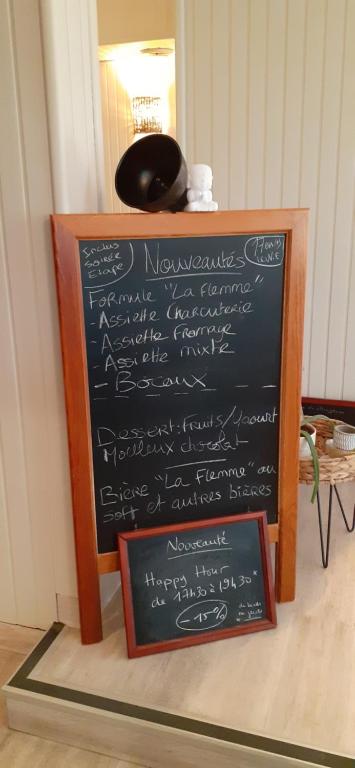 Inclus
Soirée
Etape
Nouveautés
Formule "La Flemme"
- Assiette Charcuterie
- Assiette Fromage
- Assiette mixte
- Bocaux
Dessert: Fruits/Yaourt
Moelleux chocolat
Bière "La Flemme" ou
soft et autres bières
Nouveauté
Happy Hour
de 17h30 à 19h30*
-15%